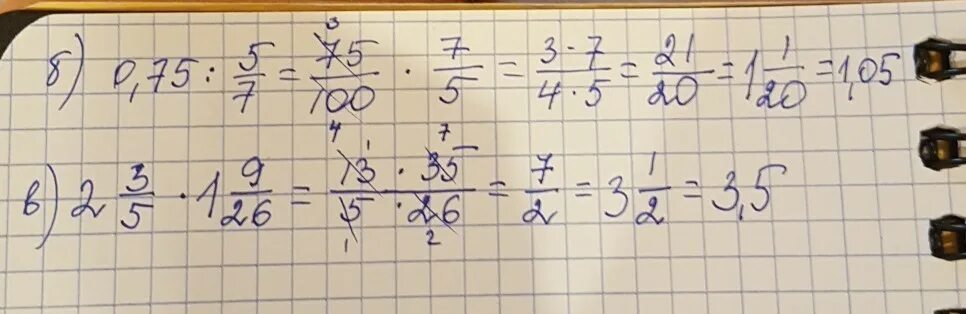 б) 0,75 : 5/7 = 75/100 · 7/5 = 3·7/4·5 = 21/20 = 1 1/20 = 1,05
в) 2 3/5 · 1 9/26 = 13 · 35/5 · 26 = 7/2 = 3 1/2 = 3,5